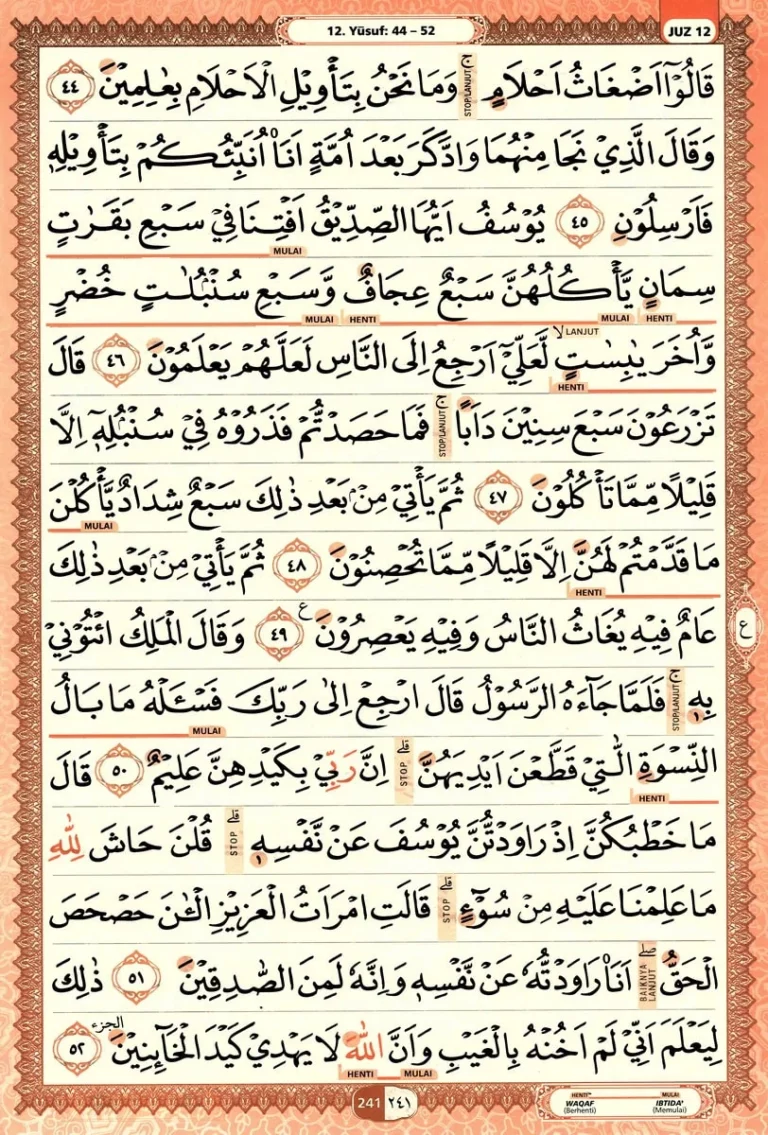 12. Yūsuf: 44 – 52
JUZ 12
قَالُوْٓا اَضْغَاثُ اَحْلَامٍۚ وَمَا نَحْنُ بِتَأْوِيْلِ الْاَحْلَامِ بِعٰلِمِيْنَ ٤٤
STOP/LANJUT
وَقَالَ الَّذِيْ نَجَا مِنْهُمَا وَادَّكَرَ بَعْدَ اُمَّةٍ اَنَا۠ اُنَبِّئُكُمْ بِتَأْوِيْلِهٖ
فَاَرْسِلُوْنِ ٤٥ يُوْسُفُ اَيُّهَا الصِّدِّيْقُ اَفْتِنَا فِيْ سَبْعِ بَقَرٰتٍ
MULAI
سِمَانٍ يَّأْكُلُهُنَّ سَبْعٌ عِجَافٌ وَّسَبْعِ سُنْۢبُلٰتٍ خُضْرٍ
HENTI MULAI HENTI MULAI
وَّاُخَرَ يٰبِسٰتٍۙ لَّعَلِّيْٓ اَرْجِعُ اِلَى النَّاسِ لَعَلَّهُمْ يَعْلَمُوْنَ ٤٦ قَالَ
LANJUT
HENTI
تَزْرَعُوْنَ سَبْعَ سِنِيْنَ دَاَبًاۚ فَمَا حَصَدْتُّمْ فَذَرُوْهُ فِيْ سُنْۢبُلِهٖٓ اِلَّا
STOP/LANJUT
قَلِيْلًا مِّمَّا تَأْكُلُوْنَ ٤٧ ثُمَّ يَأْتِيْ مِنْۢ بَعْدِ ذٰلِكَ سَبْعٌ شِدَادٌ يَّأْكُلْنَ
MULAI
مَا قَدَّمْتُمْ لَهُنَّ اِلَّا قَلِيْلًا مِّمَّا تُحْصِنُوْنَ ٤٨ ثُمَّ يَأْتِيْ مِنْۢ بَعْدِ ذٰلِكَ
HENTI
عَامٌ فِيْهِ يُغَاثُ النَّاسُ وَفِيْهِ يَعْصِرُوْنَ ࣖ ٤٩ وَقَالَ الْمَلِكُ ائْتُوْنِيْ
ع
بِهٖۚ فَلَمَّا جَاۤءَهُ الرَّسُوْلُ قَالَ ارْجِعْ اِلٰى رَبِّكَ فَسْـَٔلْهُ مَا بَالُ
STOP/LANJUT
MULAI
النِّسْوَةِ الّٰتِيْ قَطَّعْنَ اَيْدِيَهُنَّۗ اِنَّ رَبِّيْ بِكَيْدِهِنَّ عَلِيْمٌ ٥٠ قَالَ
STOP
HENTI
مَا خَطْبُكُنَّ اِذْ رَاوَدْتُّنَّ يُوْسُفَ عَنْ نَّفْسِهٖۗ قُلْنَ حَاشَ لِلّٰهِ
STOP
مَا عَلِمْنَا عَلَيْهِ مِنْ سُوْۤءٍۗ قَالَتِ امْرَاَتُ الْعَزِيْزِ الْـٰٔنَ حَصْحَصَ
STOP
الْحَقُّۖ اَنَا۠ رَاوَدْتُّهٗ عَنْ نَّفْسِهٖ وَاِنَّهٗ لَمِنَ الصّٰدِقِيْنَ ٥١ ذٰلِكَ
BAIKNYA LANJUT
لِيَعْلَمَ اَنِّيْ لَمْ اَخُنْهُ بِالْغَيْبِ وَاَنَّ اللّٰهَ لَا يَهْدِيْ كَيْدَ الْخَاۤىِٕنِيْنَ ٥٢
الجزء
HENTI MULAI
241 ٢٤١
HENTI WAQAF (Berhenti)
MULAI IBTIDA' (Memulai)